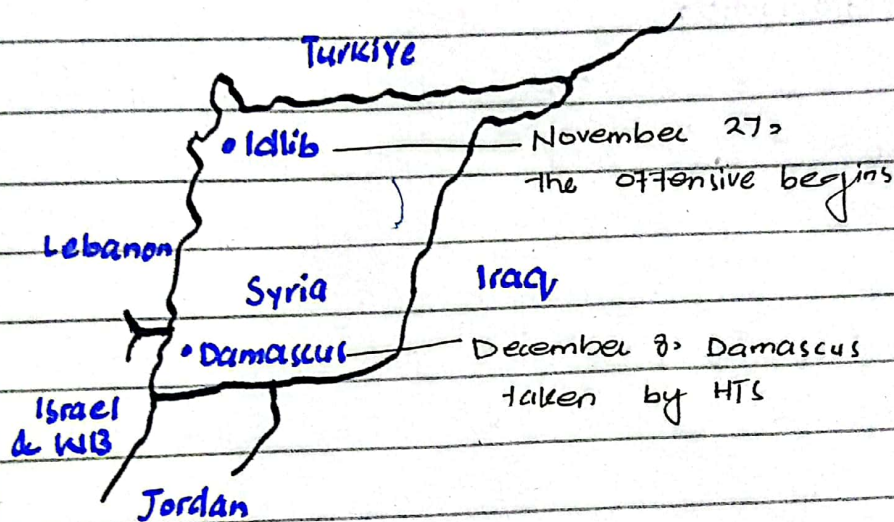 Turkiye
• Idlib
November 27,
the offensive begins
Lebanon
Syria
Iraq
• Damascus
December 8, Damascus
taken by HTS
Israel
& WB
Jordan